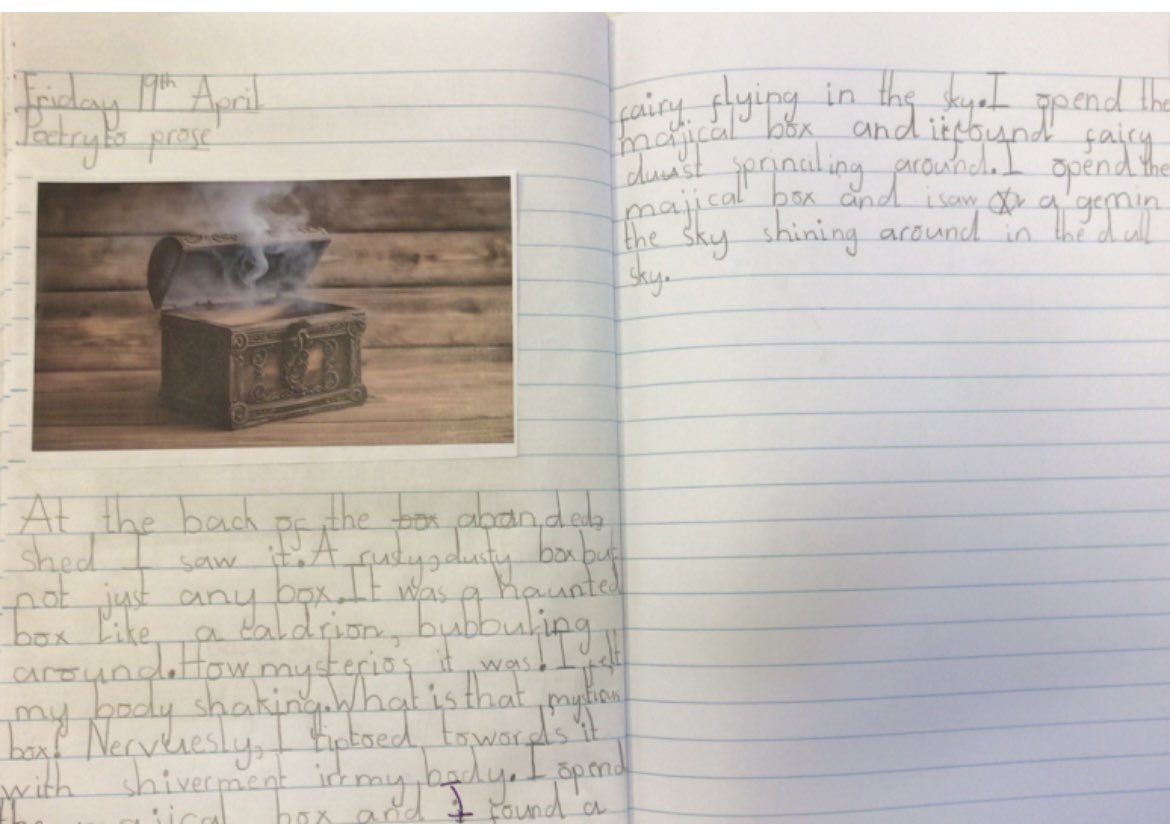 Friday 19th April
Poetry to prose
At the back of the box abanded,
shed I saw it. A rusty, dusty box but
not just any box. It was a haunted
box like a caldrion, bubbuling
around. How mysterios it was! I felt
my body shaking. What is that mystious
box! Nervuesly, I tiptoed towords it
with shiverment in my body. I opend
the majical box and I found a
fairy flying in the sky. I opend the
majical box and i found fairy
duust sprincling around. I opend the
majical box and i saw a gem in
the sky shining around in the dull
sky.